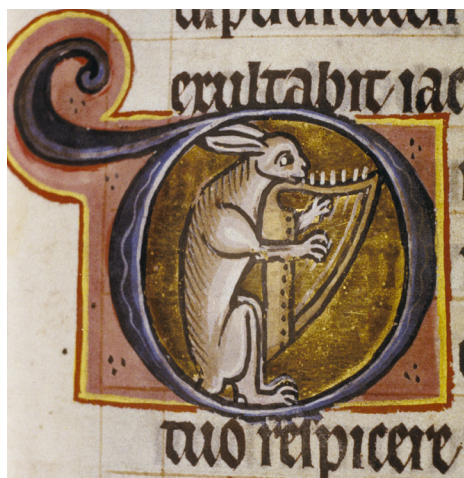 exultabit iac
D
tuo respicere